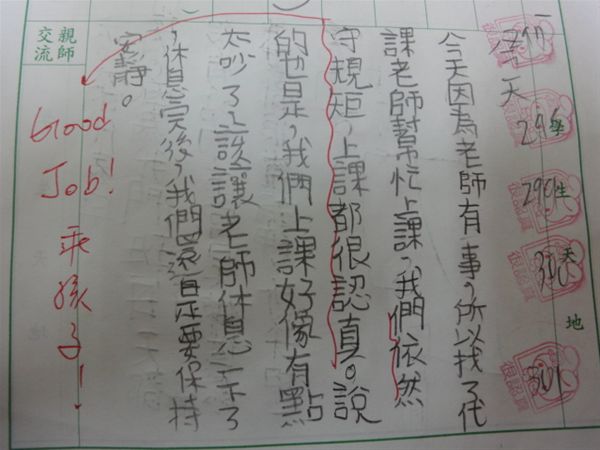 今天因為老師有事,所以找了代
課老師幫忙上課,我們依然
守規矩,上課都很認真。說
的也是,我們上課好像有點
太吵了,該讓老師休息一下了
,休息完後,我們還是要保持
安靜。
親師交流
Good
Job!
乖孩子!
學生天地
296
290
301